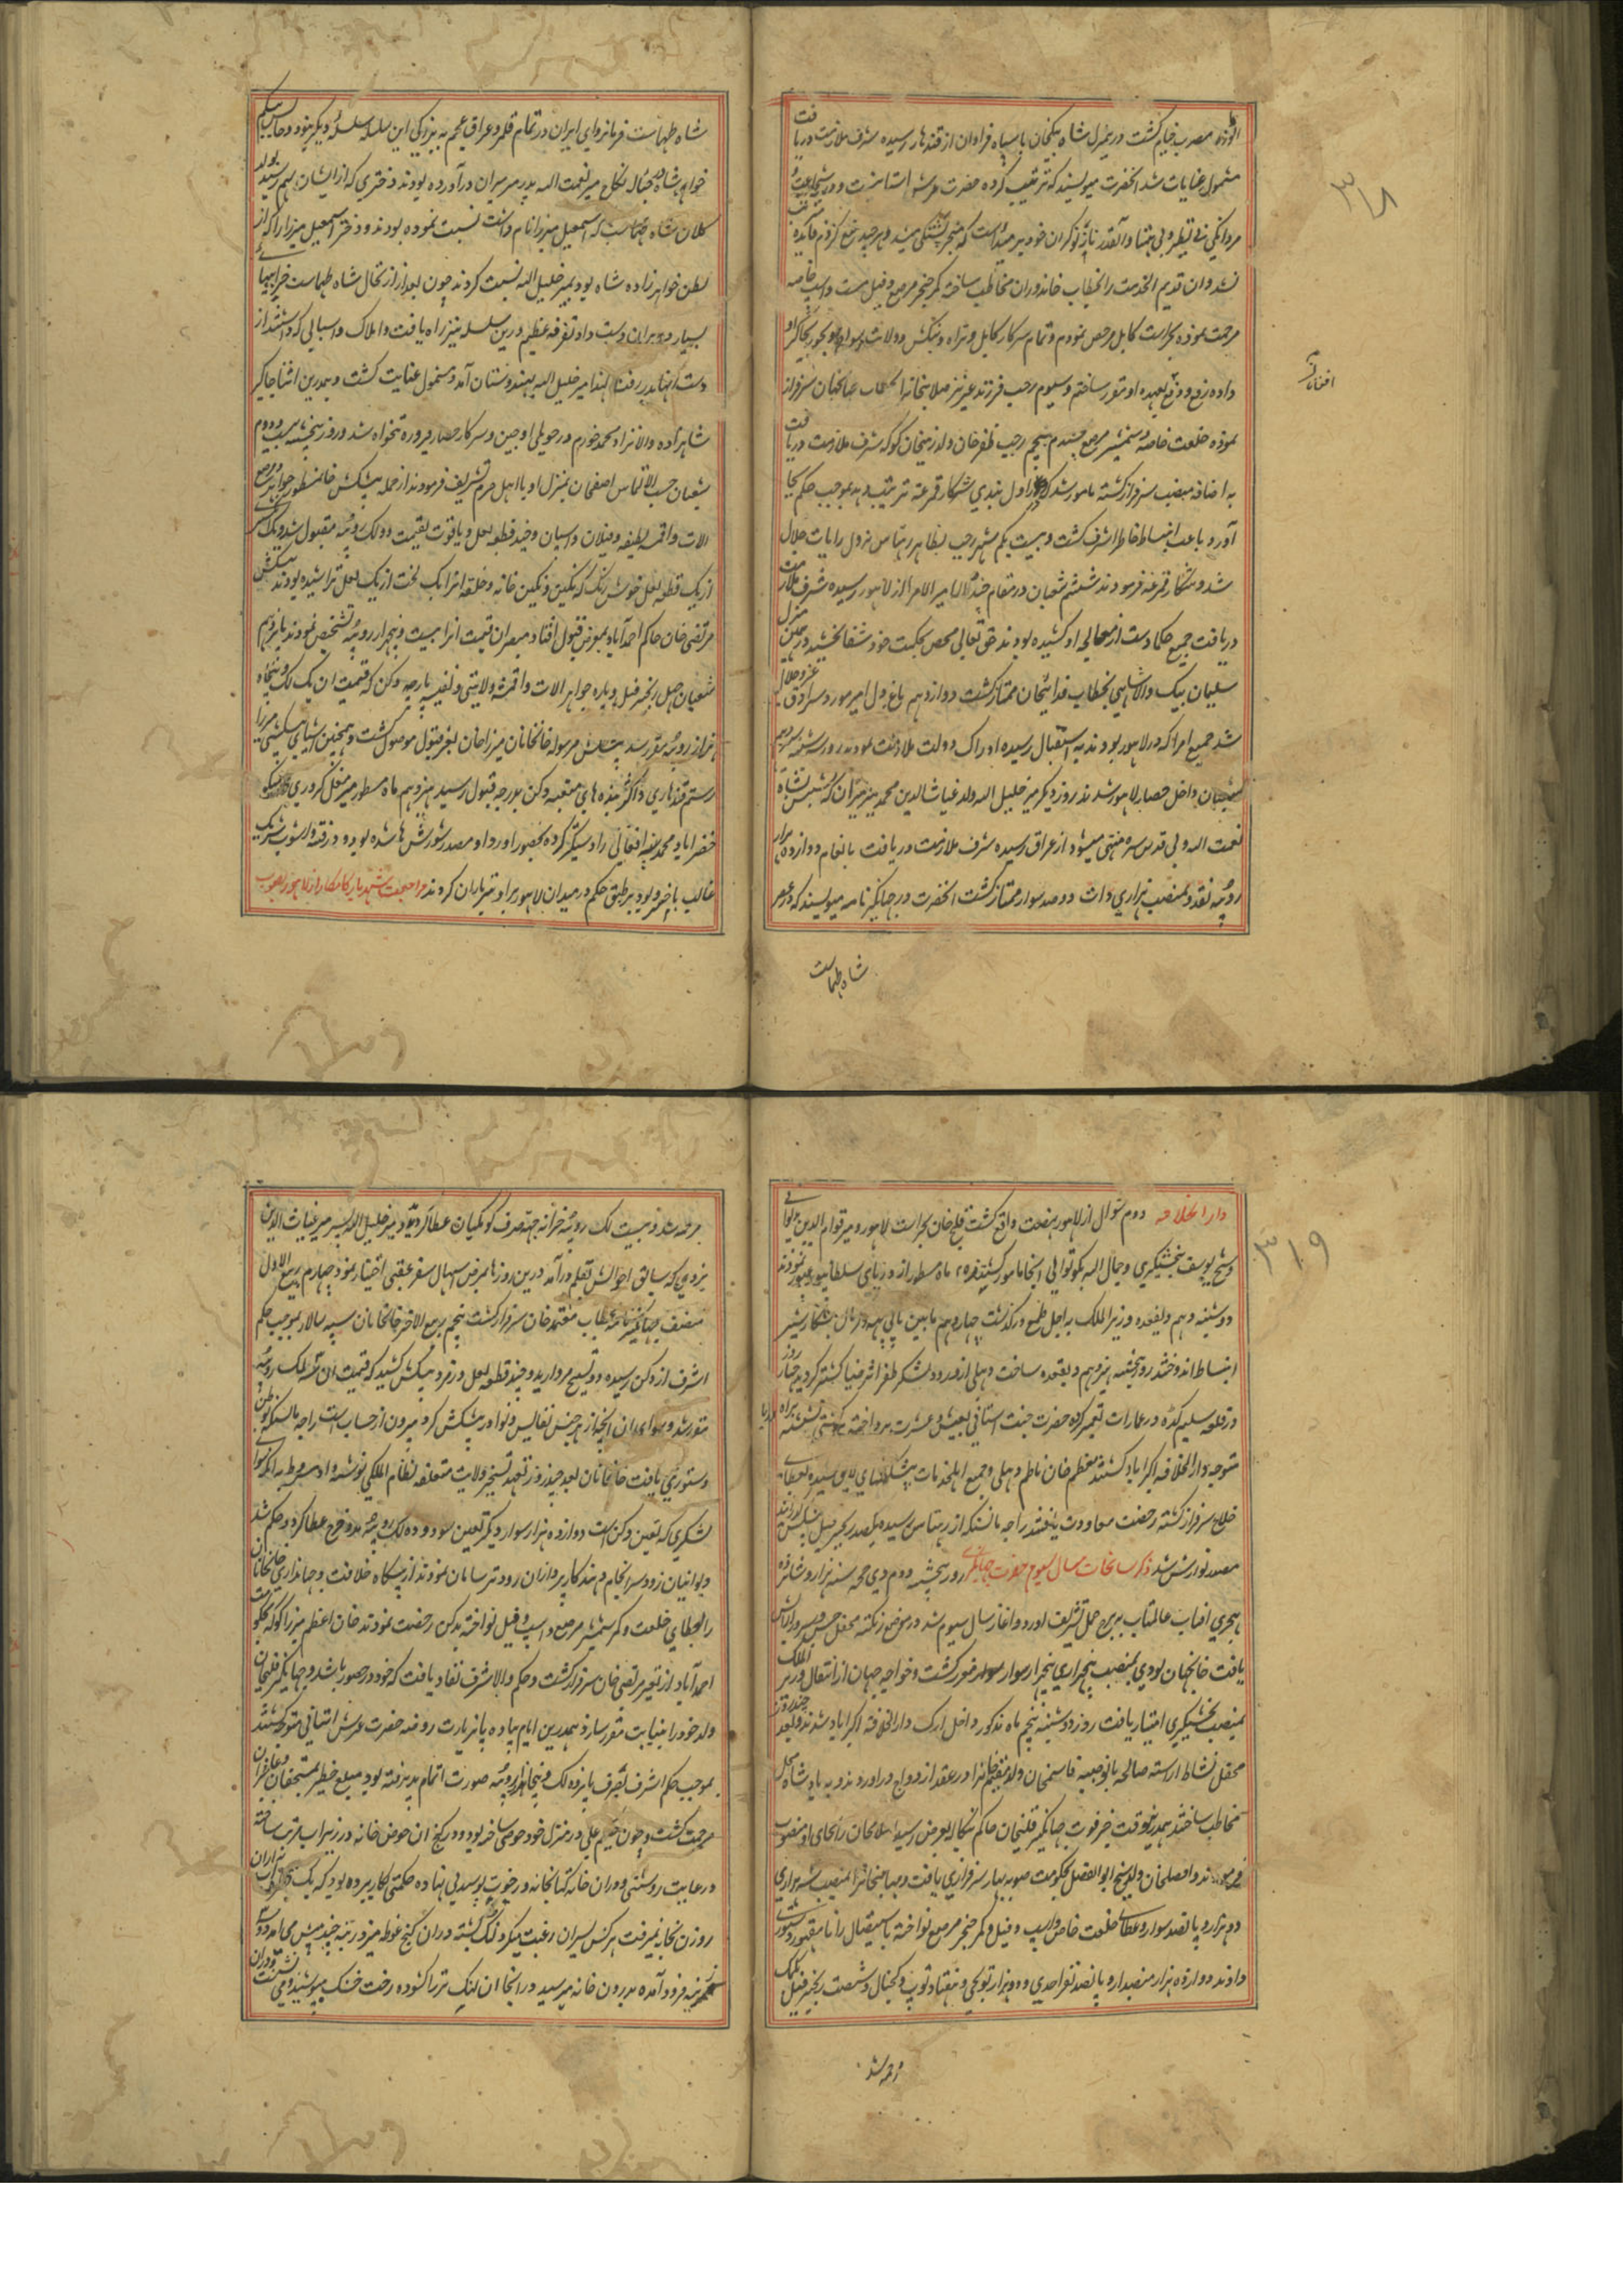 مضرب خیام گشت درینمنزل شاه بیکخان با سپاه فراوان از قندهار رسیده شرف ملازمت دریافت
مشمول عنایات شد آنحضرت مینویسند که تربیت کرده حضرت عرش آشیانیست و در شجاعت و
مردانگی بی نظیر و بی همتا
شد و آن قدیم الخدمت را بخطاب خاندوران مخاطب ساخته کمر خنجر مرصع و فیل مست و اسپ خاصه
مرحمت نموده بحراست کابل مرخص نمودم و تمام سرکار کابل و تیراه و بنکش و ولایت سواد و بجور بجاگیر او
داده رفع و دفع بعهده او مقرر ساختم و سیوم رجب فرزند عزیز صلابتخان را بخطاب خانجهان سرفراز
افغانان
نموده خلعت خاصه و شمشیر مرصع پنجم رجب ظفرخان ولد زینخان کوکه شرف ملازمت دریافت
به اضافه منصب سرفراز گشته مامور شد که اول بندی شکار قمرغه ترتیب دهد بموجب حکم بجا
آورد و باعث انبساط خاطر اشرف گشت و بیست یکم شهر رجب بظاهر رهتاس نزول رایات جلال
شد و شکار قمرغه فرمودند ششم شعبان در مقام جندالا امیر الامرا از لاهور رسیده شرف ملازمت
دریافت جمیع حکما دست از معالجه او کشیده بودند حق تعالی محض بحکمت خود شفا بخشید در همین منزل
سلیمان بیک والاشاهی بخطاب فدائیخان ممتاز گشت دوازدهم باغ دل امیر مورد سرادق عز و جلال
شد جمیع امرا که در لاهور بودند به استقبال رسیده ادراک دولت ملازمت نمودند روز سه شنبه سیزدهم
شعبان داخل حصار لاهور شدند روز دیگر میر خلیل الله ولد غیاث الدین محمد میر میران که نسبش بشاه
نعمت الله ولی قدس سره منتهی میشود از عراق رسیده شرف ملازمت دریافت بانعام دوازده هزار
روپیه نقد و بمنصب هزاری ذات و دو صد سوار ممتاز گشت آنحضرت در جهانگیر نامه مینویسند که در عصر
شاه طهماست
۳۱۸
شاه طهماست فرمانروای ایران در تمام قلمرو عراق عجم به بزرگی این سلسله سلسله دیگر نبود و جانش بیگم
خواهر شاه بحباله نکاح میر نعمت الله پدر میر میران درآورده بودند دختری که از ایشان بهم رسید بولد
کلان شاه طهماسب که اسمعیل میرزا نام داشت نسبت نموده بودند و دختر اسمعیل میرزا را که از
بطن خواهرزاده شاه بود بمیر خلیل الله نسبت کردند چون بعد از ارتحال شاه طهماست خرابیهای
بسیار در ایران دست داد تفرقه عظیم درین سلسله نیز راه یافت و املاک و اسبابی که داشتند از
دست اینها بدر رفت لهذا میر خلیل الله بهندوستان آمد و مشمول عنایت گشت و همدرین اثنا جاگیر
شاهزاده والانژاد محمد خورم در حویلی اوجین و سرکار حصار فیروزه تنخواه شد روز پنجشنبه بیست و دوم
شعبان حسب الالتماس آصفخان بمنزل او با اهل حرم تشریف فرمودند از جمله پیشکش خانمنظور جواهر و مرصع
آلات و اقمشه لطیفه و فیلان و اسپان و چند قطعه لعل و یاقوت بقیمت دو لک روپیه مقبول شد و یک
از یک قطعه لعل خوش رنگ که نگین و نگین خانه و حلقه آنرا یک لخت از یک لعل تراشیده بودند پیشکش
مرتضی خان حاکم احمدآباد بمعرض قبول افتاد مبصران قیمت آنرا بیست و پنجهزار روپیه تشخیص نمودند پانزدهم
شعبان چهل زنجیر فیل و پاره جواهر آلات و اقمشه ولایتی و نفیسه پارچه دکن که قیمت آن یک لک و پنجاه
هزار روپیه مقرر شد پیشکش مرسوله خانخانان میرزاخان بعز قبول موصول گشت و همچنین اشیای پیشکشی میرزا
رستم قندهاری و اکثر بنده های متعینه دکن بدرجه قبول رسید هژدهم ماه مسطور میر مغل کروری
خضرآباد محمد افغانی را دستگیر کرده بحضور آورد او مصدر شورش ها شده بود و در فتنه و آشوب شریک
غالب با خسرو بود بر طبق حکم در میدان لاهور برا و تیرباران کردند مراجعت شهریار کامکار از لاهور بصوب
دارالخلافه دوم شوال از لاهور نهضت واقع گشت قلیچ خان بحراست لاهور و میر قوام الدین بدیوانی
و شیخ یوسف بخشیگری و جمال الله بکوتوالی آنجا مامور گشتند ۲۵ ماه مسطور از دریای سلطانپور عبور نمودند
دوشنبه دهم ذیقعده وزیر الملک به اجل طبع درگذشت چهاردهم مابین پانی پت و کرنال بشکار شیر
انبساط اندوختند روز پنجشنبه هژدهم ذیقعده ساحت دهلی از ورود لشکر ظفر اثر ضیا گستر گردید چهار روز
در قلعه سلیم گده در عمارات تعمیر کرده حضرت جنت آشیانی بعیش و عشرت پرداخته بکشتی نشسته براه دریا
متوجه دارالخلافه اکبرآباد گشتند معظم خان ناظم دهلی و جمیع اهلخدمات پیشکشهای لایق رسیده بعطای
خلاع سرفراز گشته رخصت معاودت یافتند راجه مانسنگه از رهتاس رسیده یکصد زنجیر فیل پیشکش گذرانید
مصدر نوازش شد ذکر سانحات سال سیوم حضرت جهانگیری روز پنجشنبه دوم ذی حجه سنه هزار و شانزده
هجری آفتاب عالمتاب به برج حمل تشریف آورد و آغاز سال سیوم شد در موضع رنگته محفل جشن و سرور آرایش
یافت خانجهان لودی بمنصب پنجهزاری پنجهزار سوار سرافراز گشت و خواجه جهان از انتقال وزیر الملک
بمنصب بخشیگری امتیاز یافت روز دوشنبه پنجم ماه مذکور داخل ارک دارالخلافه اکبرآباد شدند و بعد چند روز
محفل نشاط آراسته صالحه بانو صبیه قاسمخان ولد مقیم خان را در عقد ازدواج درآوردند و به پادشاه محل
مخاطب ساختند همدرینوقت خبر فوت جهانگیر قلیخان حاکم بنگاله بعرض رسید اسلامخان را بجای او منصوب
فرمودند و افضلخان ولد شیخ ابوالفضل بحکومت صوبه بهار سرفرازی یافت و مهابتخان را بمنصب سه هزاری
دو هزار و پانصد سوار و عطای خلعت خاص و اسپ و فیل و کمر خنجر مرصع نواخته باستیصال رانا مقهور دستوری
دادند دوازده هزار منصبدار و پانصد نفر احدی و دو هزار توپچی و هفتاد توپ و گجنال و شصت زنجیر فیل بکمک
مرحمه شد
۳۱۹
مرحمه شد و بیست لک روپیه خزانه جهة صرف کومکیان عطا گردید میر خلیل الله پسر میر غیاث الدین
یزدی که سابق احوالش بقلم درآمد درین روزها بمرض اسهال سفر عقبی اختیار نمود چهارم ربیع الاول
مصنف جهانگیر نامه بخطاب معتمد خان سرفراز گشت پنجم ربیع الاخر خانخانان سپه سالار بموجب حکم
اشرف از دکن رسیده دو تسبیح مروارید و چند قطعه لعل و زمرد پیشکش کشید که قیمت آن سه لک روپیه
مقرر شد و سوای آن آنچه از هر جنس نفایس و نوادر پیشکش کرد بیرون از حساب است راجه مانسنگه بوطن
دستوری یافت خانخانان بعد چند روز تعهد تسخیر ولایت متعلقه نظام الملکی نوشته داد مشروط به آنکه سوای
لشکری که بتعین دکن است دوازده هزار سوار دیگر تعین شود و ده لک روپیه مدد خرج عطا گردد حکم شد
دیوانیان زود سرانجام دهند کارپردازان زودتر سامان نمودند از پیشگاه خلافت و جهانداری خانخانان
را بعطای خلعت و کمر شمشیر مرصع و اسپ و فیل نواخته بدکن رخصت نمودند خان اعظم میرزا کوکه بحکومت
احمدآباد از تغیر مرتضی خان سرفراز گشت و حکم والا شرف نفاد یافت که خود در حضور باشد و جهانگیر قلیخان
ولد خود را بنیابت مقرر سازد همدرین ایام پیاده پا بزیارت روضه حضرت عرش آشیانی متوجه گشتند
بموجب حکم اشرف بصرف پانزده لک و پنجاه هزار روپیه صورت اتمام پذیرفته بود مبلغ خطیر بمستحقان و خادمان
مرحمت گشت و چون حکیم علی در منزل خود حوضی ساخته بود و در کنج آن حوض خانه در زیر آب ترتیب ساخته
در غایت روشنی و در آن خانه کتابخانه و رخوت پوسیدنی نهاده حکمتی بکار برده بود که یک قطره آب از آن
روزن بخانه نمیرفت هر کس بسیر آن رغبت میکرد لنگ بسته در آن کنج غوطه میزد زینه چند پیش می آمد
زینه فرود آمده بدرون خانه میرسید در آنجا آن لنگ تر را گشوده رخت خشک میپوشید و می نشست و در آن